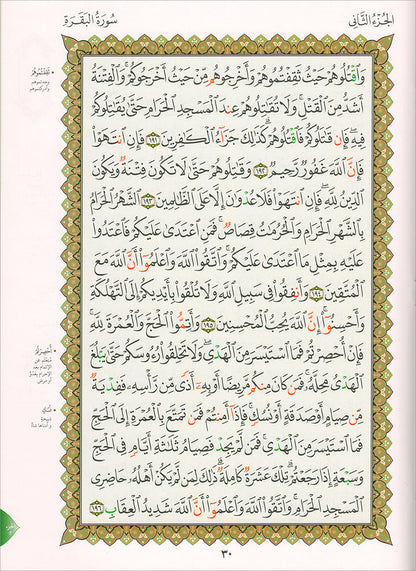 الجُزْءُ الثَّانِي
سُورَةُ البَقَرَةِ
وَاقْتُلُوهُمْ حَيْثُ ثَقِفْتُمُوهُمْ وَأَخْرِجُوهُم مِّنْ حَيْثُ أَخْرَجُوكُمْ وَالْفِتْنَةُ
أَشَدُّ مِنَ الْقَتْلِ وَلَا تُقَاتِلُوهُمْ عِندَ الْمَسْجِدِ الْحَرَامِ حَتَّى يُقَاتِلُوكُمْ
فِيهِ فَإِن قَاتَلُوكُمْ فَاقْتُلُوهُمْ كَذَلِكَ جَزَاءُ الْكَافِرِينَ ١٩١ فَإِنِ انتَهَوْا
فَإِنَّ اللَّهَ غَفُورٌ رَّحِيمٌ ١٩٢ وَقَاتِلُوهُمْ حَتَّى لَا تَكُونَ فِتْنَةٌ وَيَكُونَ
الدِّينُ لِلَّهِ فَإِنِ انتَهَوْا فَلَا عُدْوَانَ إِلَّا عَلَى الظَّالِمِينَ ١٩٣ الشَّهْرُ الْحَرَامُ
بِالشَّهْرِ الْحَرَامِ وَالْحُرُمَاتُ قِصَاصٌ فَمَنِ اعْتَدَى عَلَيْكُمْ فَاعْتَدُوا
عَلَيْهِ بِمِثْلِ مَا اعْتَدَى عَلَيْكُمْ وَاتَّقُوا اللَّهَ وَاعْلَمُوا أَنَّ اللَّهَ مَعَ
الْمُتَّقِينَ ١٩٤ وَأَنفِقُوا فِي سَبِيلِ اللَّهِ وَلَا تُلْقُوا بِأَيْدِيكُمْ إِلَى التَّهْلُكَةِ
وَأَحْسِنُوا إِنَّ اللَّهَ يُحِبُّ الْمُحْسِنِينَ ١٩٥ وَأَتِمُّوا الْحَجَّ وَالْعُمْرَةَ لِلَّهِ
فَإِنْ أُحْصِرْتُمْ فَمَا اسْتَيْسَرَ مِنَ الْهَدْيِ وَلَا تَحْلِقُوا رُءُوسَكُمْ حَتَّى يَبْلُغَ
الْهَدْيُ مَحِلَّهُ فَمَن كَانَ مِنكُم مَّرِيضًا أَوْ بِهِ أَذًى مِّن رَّأْسِهِ فَفِدْيَةٌ
مِّن صِيَامٍ أَوْ صَدَقَةٍ أَوْ نُسُكٍ فَإِذَا أَمِنتُمْ فَمَن تَمَتَّعَ بِالْعُمْرَةِ إِلَى الْحَجِّ
فَمَا اسْتَيْسَرَ مِنَ الْهَدْيِ فَمَن لَّمْ يَجِدْ فَصِيَامُ ثَلَاثَةِ أَيَّامٍ فِي الْحَجِّ
وَسَبْعَةٍ إِذَا رَجَعْتُمْ تِلْكَ عَشَرَةٌ كَامِلَةٌ ذَلِكَ لِمَن لَّمْ يَكُنْ أَهْلُهُ حَاضِرِي
الْمَسْجِدِ الْحَرَامِ وَاتَّقُوا اللَّهَ وَاعْلَمُوا أَنَّ اللَّهَ شَدِيدُ الْعِقَابِ ١٩٦
ثَقِفْتُمُوهُمْ
أُحْصِرْتُمْ
٣٠